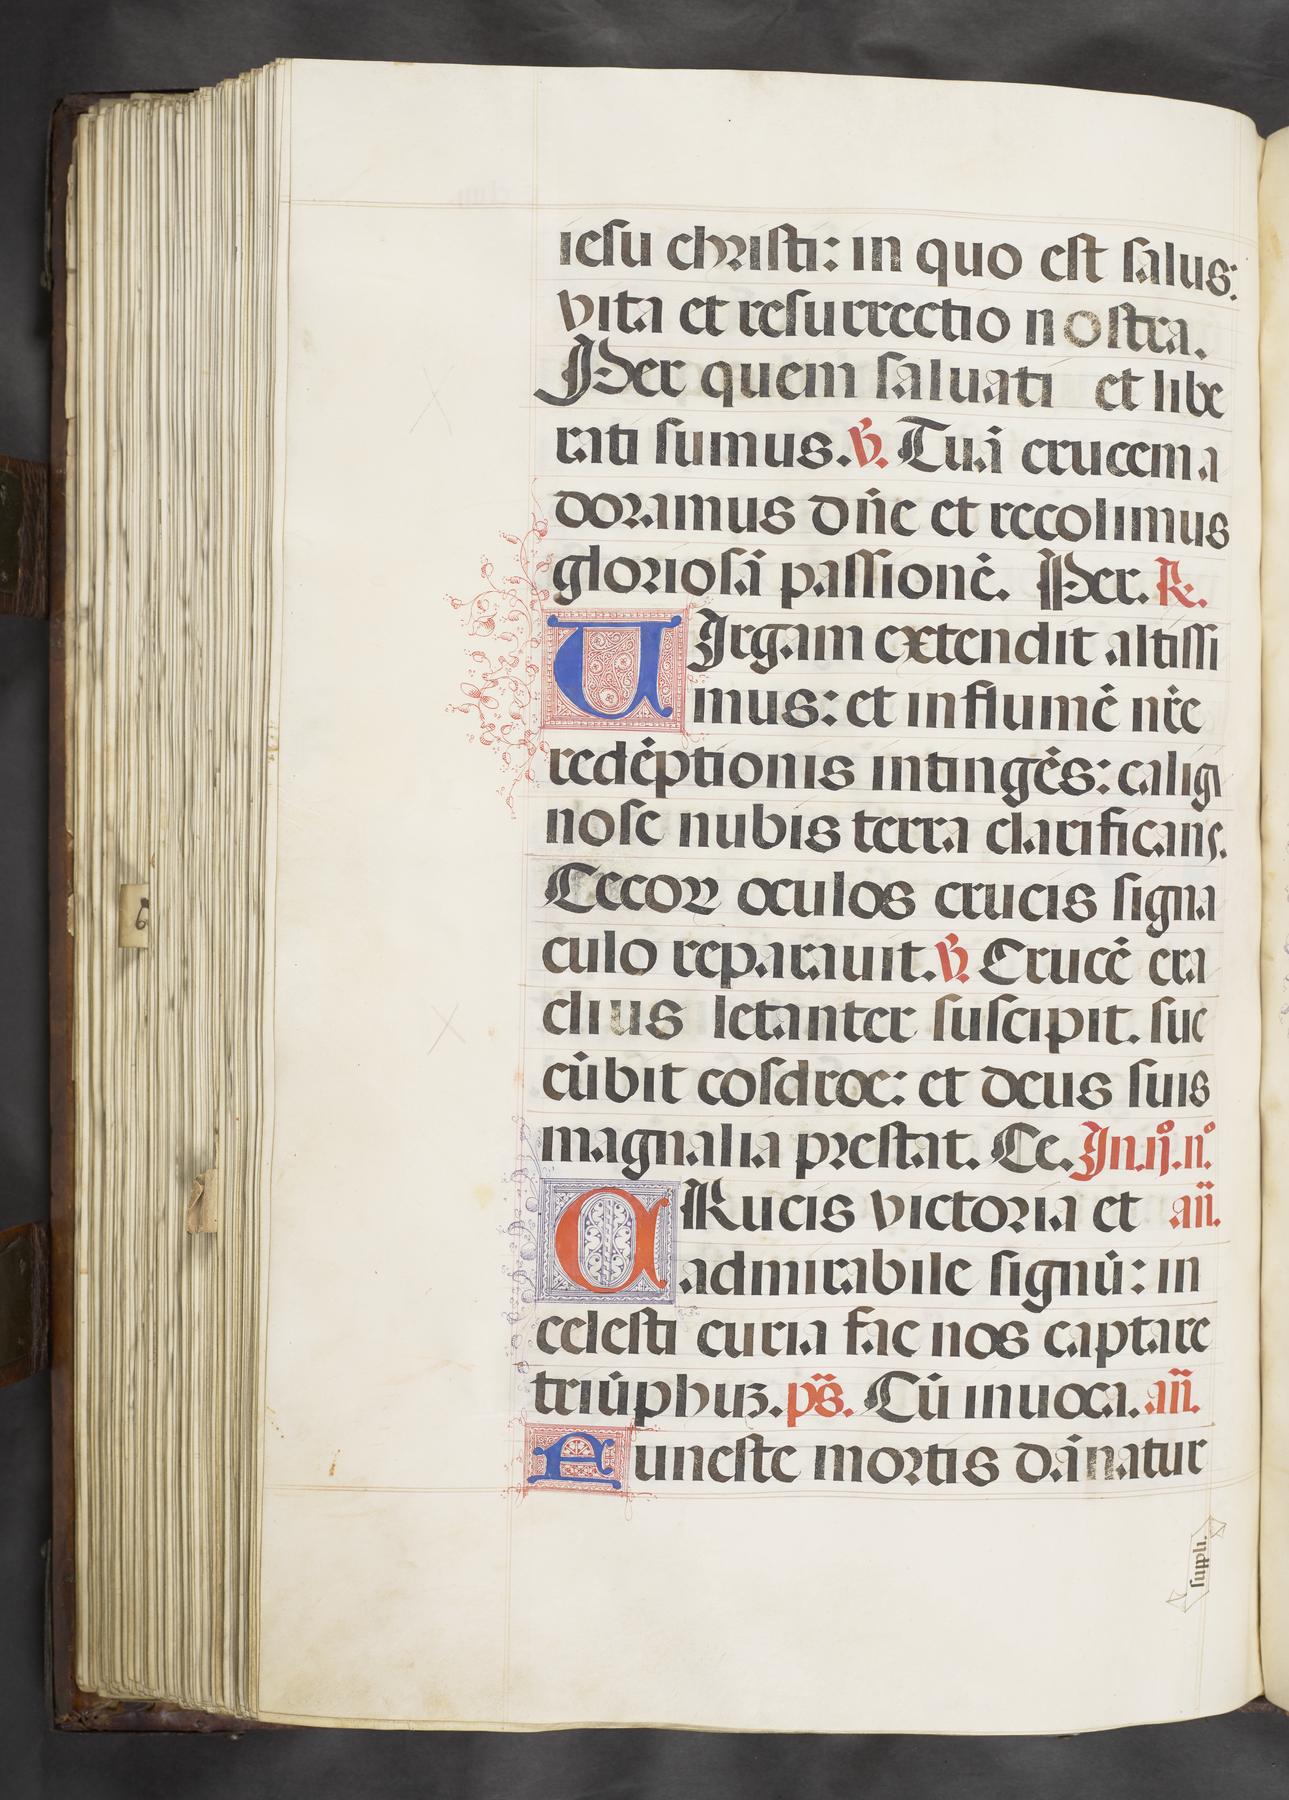 iesu christi: in quo est salus:
vita et resurrectio nostra.
Per quem saluati et libe
rati sumus. ℣. Tuā crucem a
doramus dn̄e et recolimus
gloriosā passionē. Per. ℟.
UIrgam extendit altissi
mus: et in flumē nr̄e
redēptionis intingēs: caligi
nose nubis terra clarificans.
Cecoꝝ oculos crucis signa
culo reparauit. ℣. Crucē era
clius letanter suscipit. suc
cūbit cosdroe: et deus suis
magnalia prestat. Ce. In.ijº.nº
CRucis victoria et añ.
admirabile signū: in
celesti curia fac nos captare
triūphuꝫ. ps̄. Cū inuoca. añ.
Funeste mortis dānatur
suppli.
6